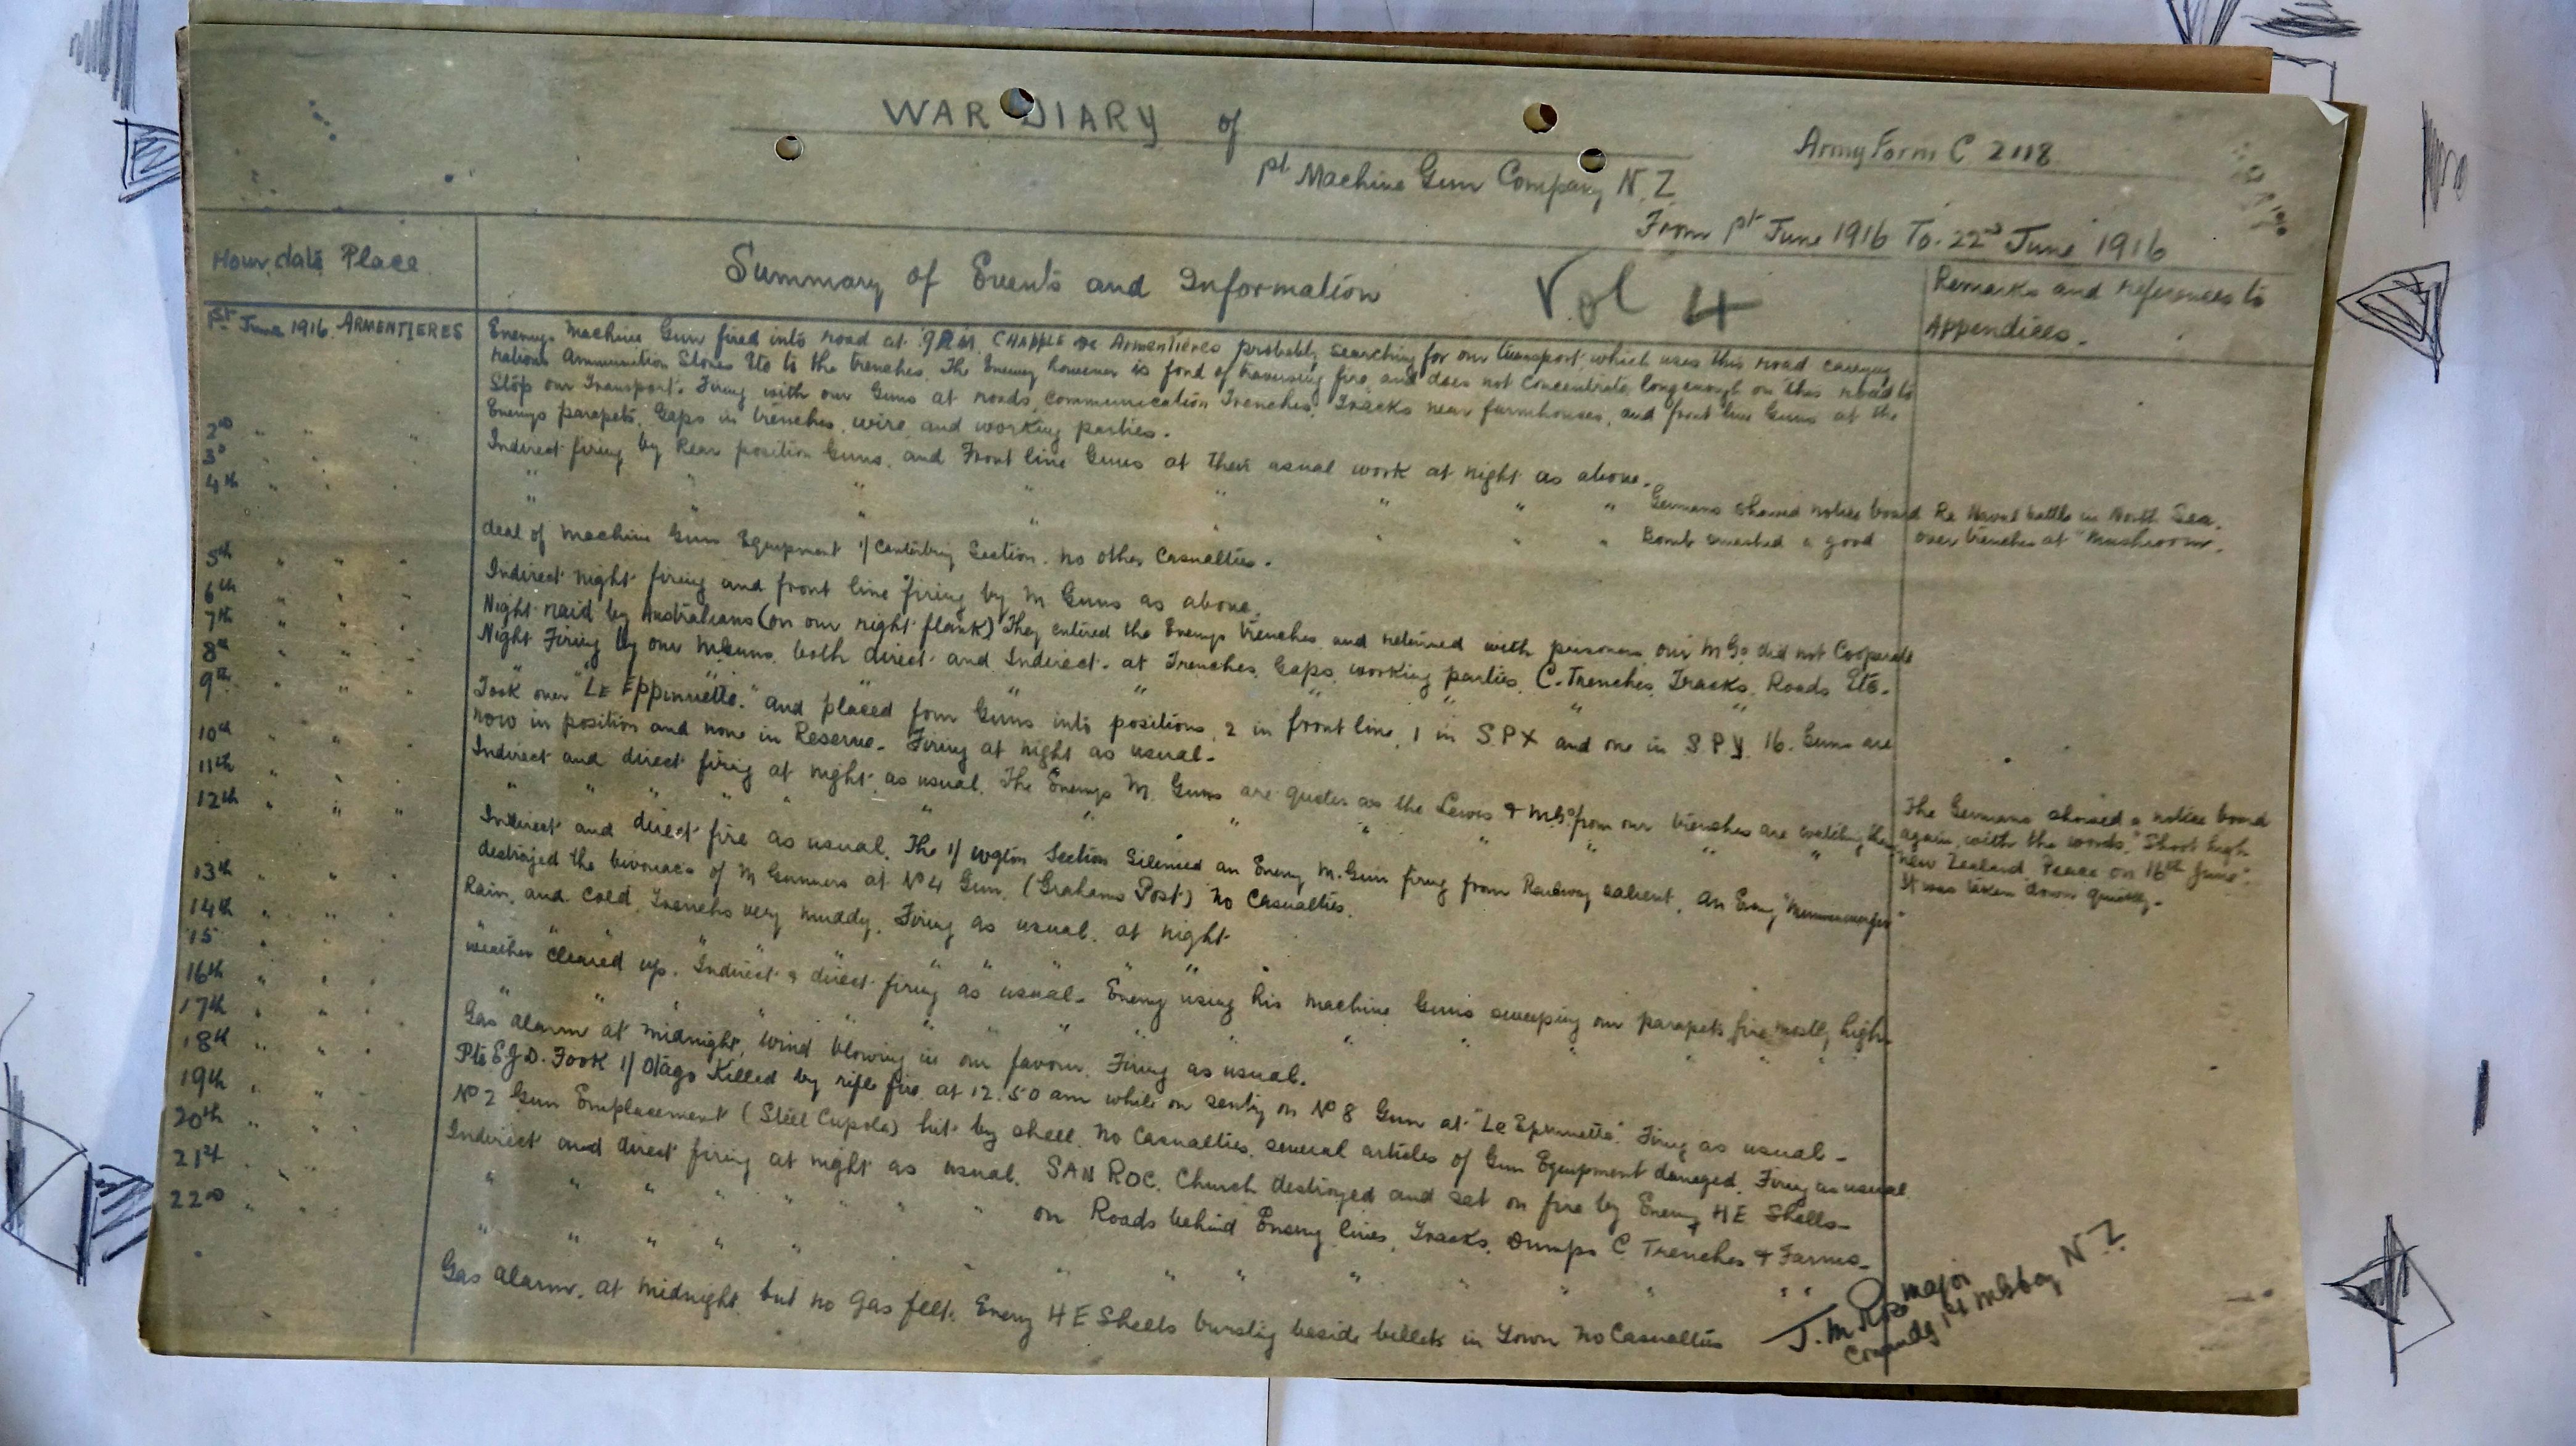 WAR DIARY of
Army Form C 2118
1st Machine Gun Company N.Z
From 1st June 1916 To. 22nd June 1916
Hour, date Place
Summary of Events and Information
Vol 4
Remarks and references to
Appendices.
1st June 1916. ARMENTIERES
Enemys Machine Gun fired into road at 9PM. CHAPPLE De Armentieres probably searching for our transport which uses this road carrying
rations Ammunition Stores Etc to the trenches. The Enemy however is fond of traversing fire, and does not Concentrate long enough on this road to
Stop our Transport. Firing with our Guns at roads, communication Trenches, Tracks near farmhouses, and front line Guns at the
Enemys parapets, Gaps in trenches, wire, and working parties.
2nd " " "
Indirect firing by Rear position Guns, and Front line Guns at their usual work at night as above.
3d " " "
" " " " " " " " Germans showed notice board Re Naval battle in North Sea.
4th " " "
" " " " " " " " Bomb smashed a good
over trenches at "Mushroom".
deal of Machine Gun Equipment 1/ Canterbury Section. No other Casualties.
5th " " "
Indirect night firing and front line firing by M Guns as above.
6th " " "
Night raid by Australians (on our right flank) They entered the Enemys trenches, and returned with prisoners, our M Gs did not Cooperate
7th " " "
Night Firing by our MGuns, both direct and Indirect. at Trenches, Gaps, working parties, C. Trenches, Tracks, Roads Etc.
8th " " "
" " " " " " "
9th " " "
Took over "LE Eppinnette." and placed four Guns into positions, 2 in front line, 1 in S.P.X and one in S.P.Y. 16. Guns are
now in position and none in Reserve. Firing at night as usual.
10th " " "
Indirect and direct firing at night, as usual. The Enemys M. Guns are quieter as the Lewis & MGs from our trenches are watching them
The Germans showed a notice board
again, with the words, "Shoot high
New Zealand. Peace on 16th June".
It was taken down quickly.
11th " " "
" " " " " " " " " " " "
12th " " "
Indirect and direct fire as usual. The 1/ Wgton Section Silenced an Enemy M. Gun firing from Railway salient. An Enemy "Minnenwerfer"
destroyed the bivouacs of M Gunners at No 4 Gun. (Grahams Post) No Casualties.
13th " " "
Rain, and Cold, Trenches very muddy. Firing as usual, at night
14th " " "
" " " " " " "
15 " " "
Weather Cleared up. Indirect & direct firing as usual. Enemy using his Machine Guns sweeping our parapets, fire mostly high.
16th " " "
" " " " " " " " " " " "
17th " " "
Gas alarm at midnight, wind blowing in our favour. Firing as usual.
18th " " "
Pte E.J.D. Fook 1/ Otago Killed by rifle fire, at 12.50 am while on sentry on No 8 Gun at "Le Epinnette". Firing as usual.
19th " "
No 2 Gun Emplacement (Steel Cupola) hit by shell. No Casualties. several articles of Gun Equipment damaged. Firing as usual.
20th " " "
Indirect and direct firing at night as usual. SAN ROC. Church destroyed and set on fire by Enemy HE Shells.
21st " "
" " " " " " " " on Roads behind Enemy lines, Tracks, Dumps C Trenches & Farms.
22nd " " "
" " " " " " " " " " " "
Gas alarm, at midnight, but no gas felt. Enemy HE Shells bursting beside billets in Town No Casualties
J. M. Rose Major
Comndg 1st MG Coy N Z.